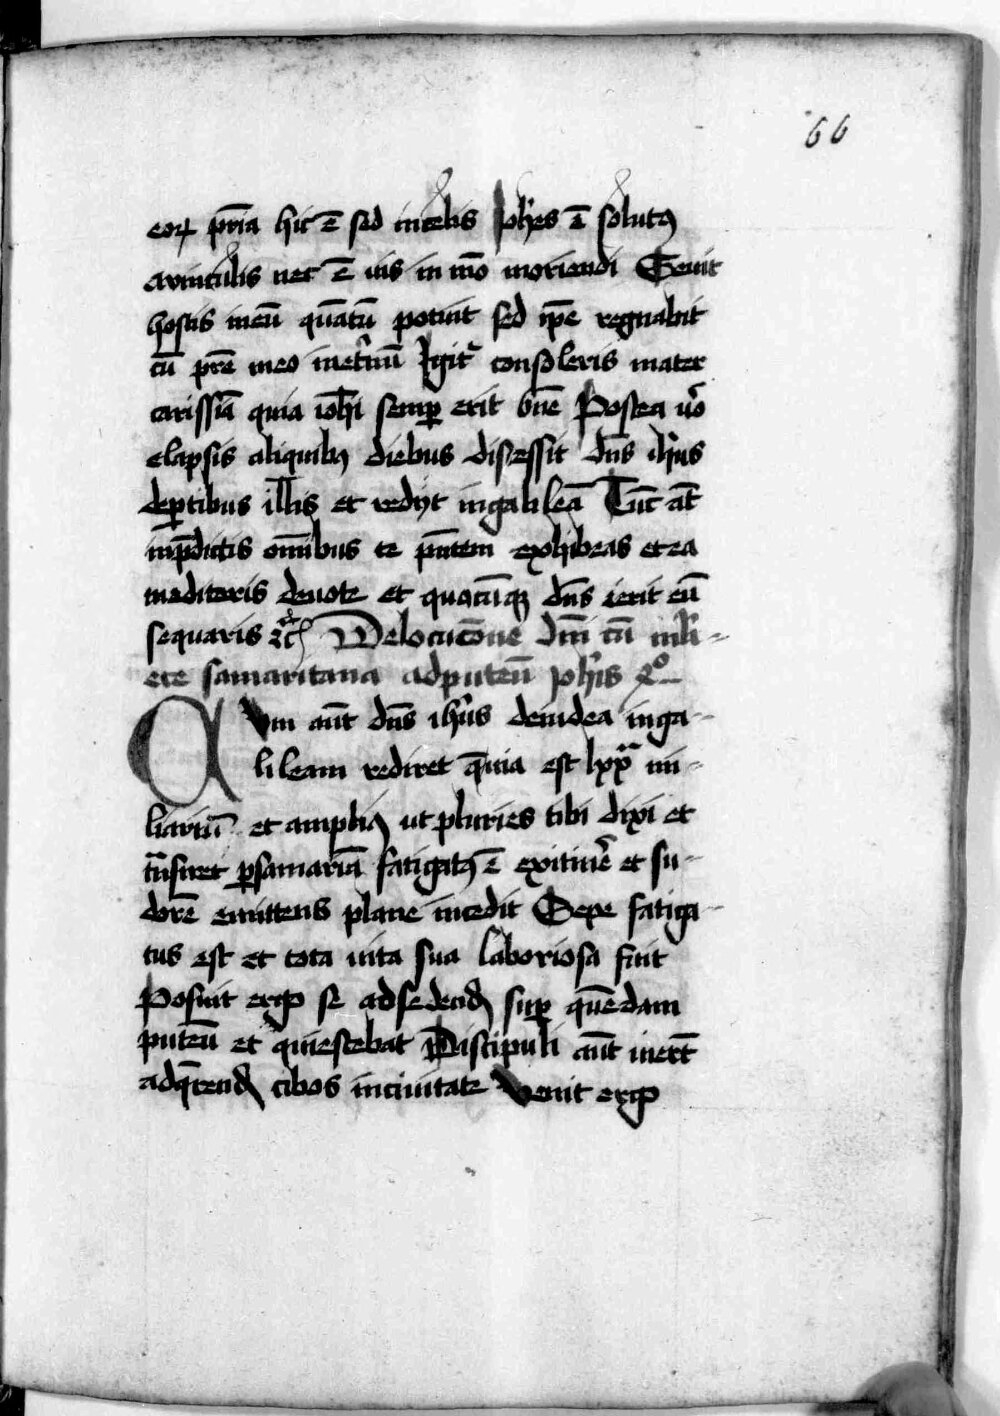 66
eoꝝ pr̄ia hic ē sed in celis Joh̄es ē solutꝯ
a vinculis nec ē vis in mō moriendi Seuit
hostis meū quātū potuit sed ip̄e regnabit
cū pr̄e meo in et̓nū Igit᷑ consoleris mater
carissīa quia ioh̄i semꝑ erit bn̄e Postea v̓o
elapsis aliquibꝯ diebus discessit dn̄s ih̄us
de ꝑtibus illis et redijt in galileā Tūc aūt
in p̄dictis om̄ibus te p̄ntem exhibeas et ea
mediteris deuote et quocūqꝫ dn̄s ierit eū
sequaris ⁊c̄ De locucōne dn̄i cū muli-
ere samaritana ad puteū joh̄is 4º
Cum aūt dn̄s ih̄us de iudea in ga-
lileam rediret q̄ uia est lxxᵃ mi-
liariū et ampliꝯ ut pluries tibi dixi et
trāsiret ꝑ samariā fatigatꝯ ē ex itin̓e et su-
dorē emittens plane incedit Sepe fatiga-
tus est et tota uita sua laboriosa fuit
Posuit ergo se ad sedendū suꝑ quēdam
puteū et quiescebat Discipuli aūt iuer̄t
ad q̄rendū cibos in ciuitate Venit ergo